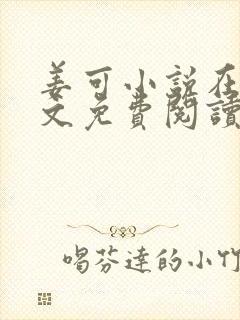 姜可小说在
文免費閱讀
喝芬達的小竹